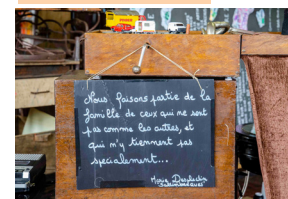 Nous faisons partie de la
famille de ceux qui ne sont
pas comme les autres, et
qui n'y tiennent pas
spécialement...
Marie Desplechin